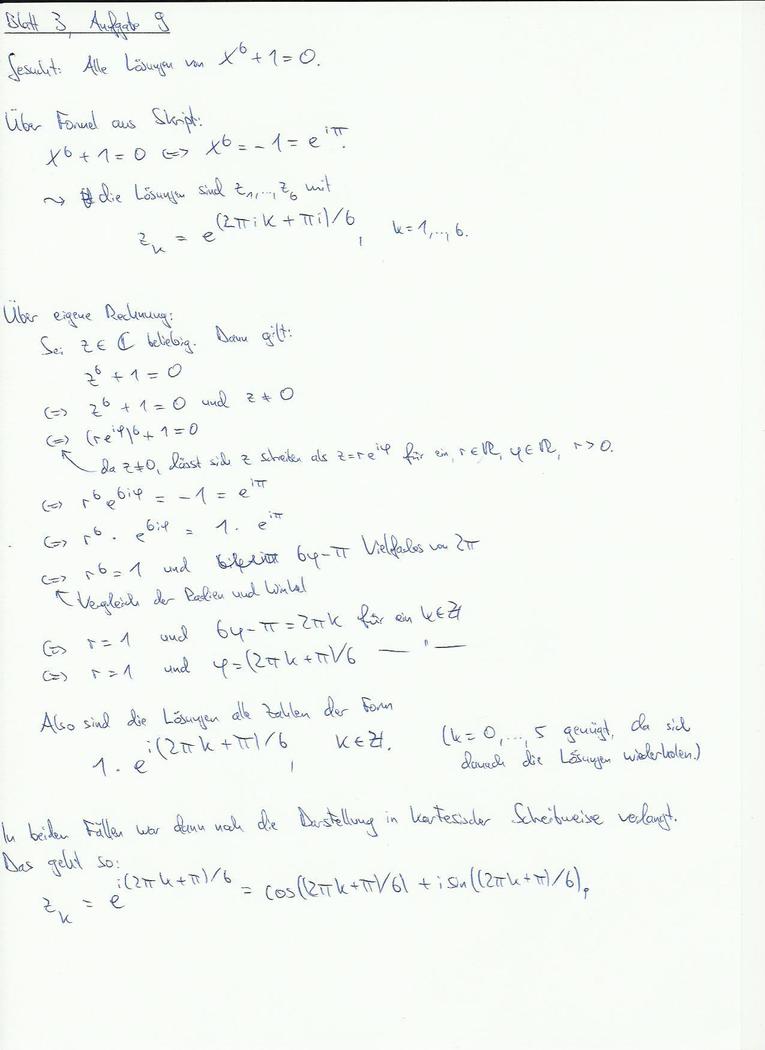 Blatt 3, Aufgabe 9
Gesucht: Alle Lösungen von X⁶ + 1 = 0.
Über Formel aus Skript:
X⁶ + 1 = 0 <=> X⁶ = -1 = e^{iπ}.
⇝ die Lösungen sind z₁,...,z₆ mit
z_k = e^{(2πik + πi)/6}, k=1,..,6.
Über eigene Rechnung:
Sei z ∈ ℂ beliebig. Dann gilt:
z⁶ + 1 = 0
<=> z⁶ + 1 = 0 und z ≠ 0
<=> (re^{iφ})⁶ + 1 = 0
da z≠0, lässt sich z schreiben als z=re^{iφ} für ein r∈ℝ, φ∈ℝ, r>0.
<=> r⁶e^{6iφ} = -1 = e^{iπ}
<=> r⁶ · e^{6iφ} = 1 · e^{iπ}
<=> r⁶ = 1 und 6φ-π Vielfaches von 2π
Vergleich der Radien und Winkel
<=> r = 1 und 6φ-π = 2πk für ein k∈ℤ
<=> r = 1 und φ=(2πk+π)/6 — " —
Also sind die Lösungen alle Zahlen der Form
1 · e^{i(2πk+π)/6}, k∈ℤ. (k=0,...,5 genügt, da sich
danach die Lösungen wiederholen.)
In beiden Fällen war dann noch die Darstellung in kartesischer Schreibweise verlangt.
Das geht so:
z_k = e^{i(2πk+π)/6} = cos((2πk+π)/6) + i sin((2πk+π)/6).